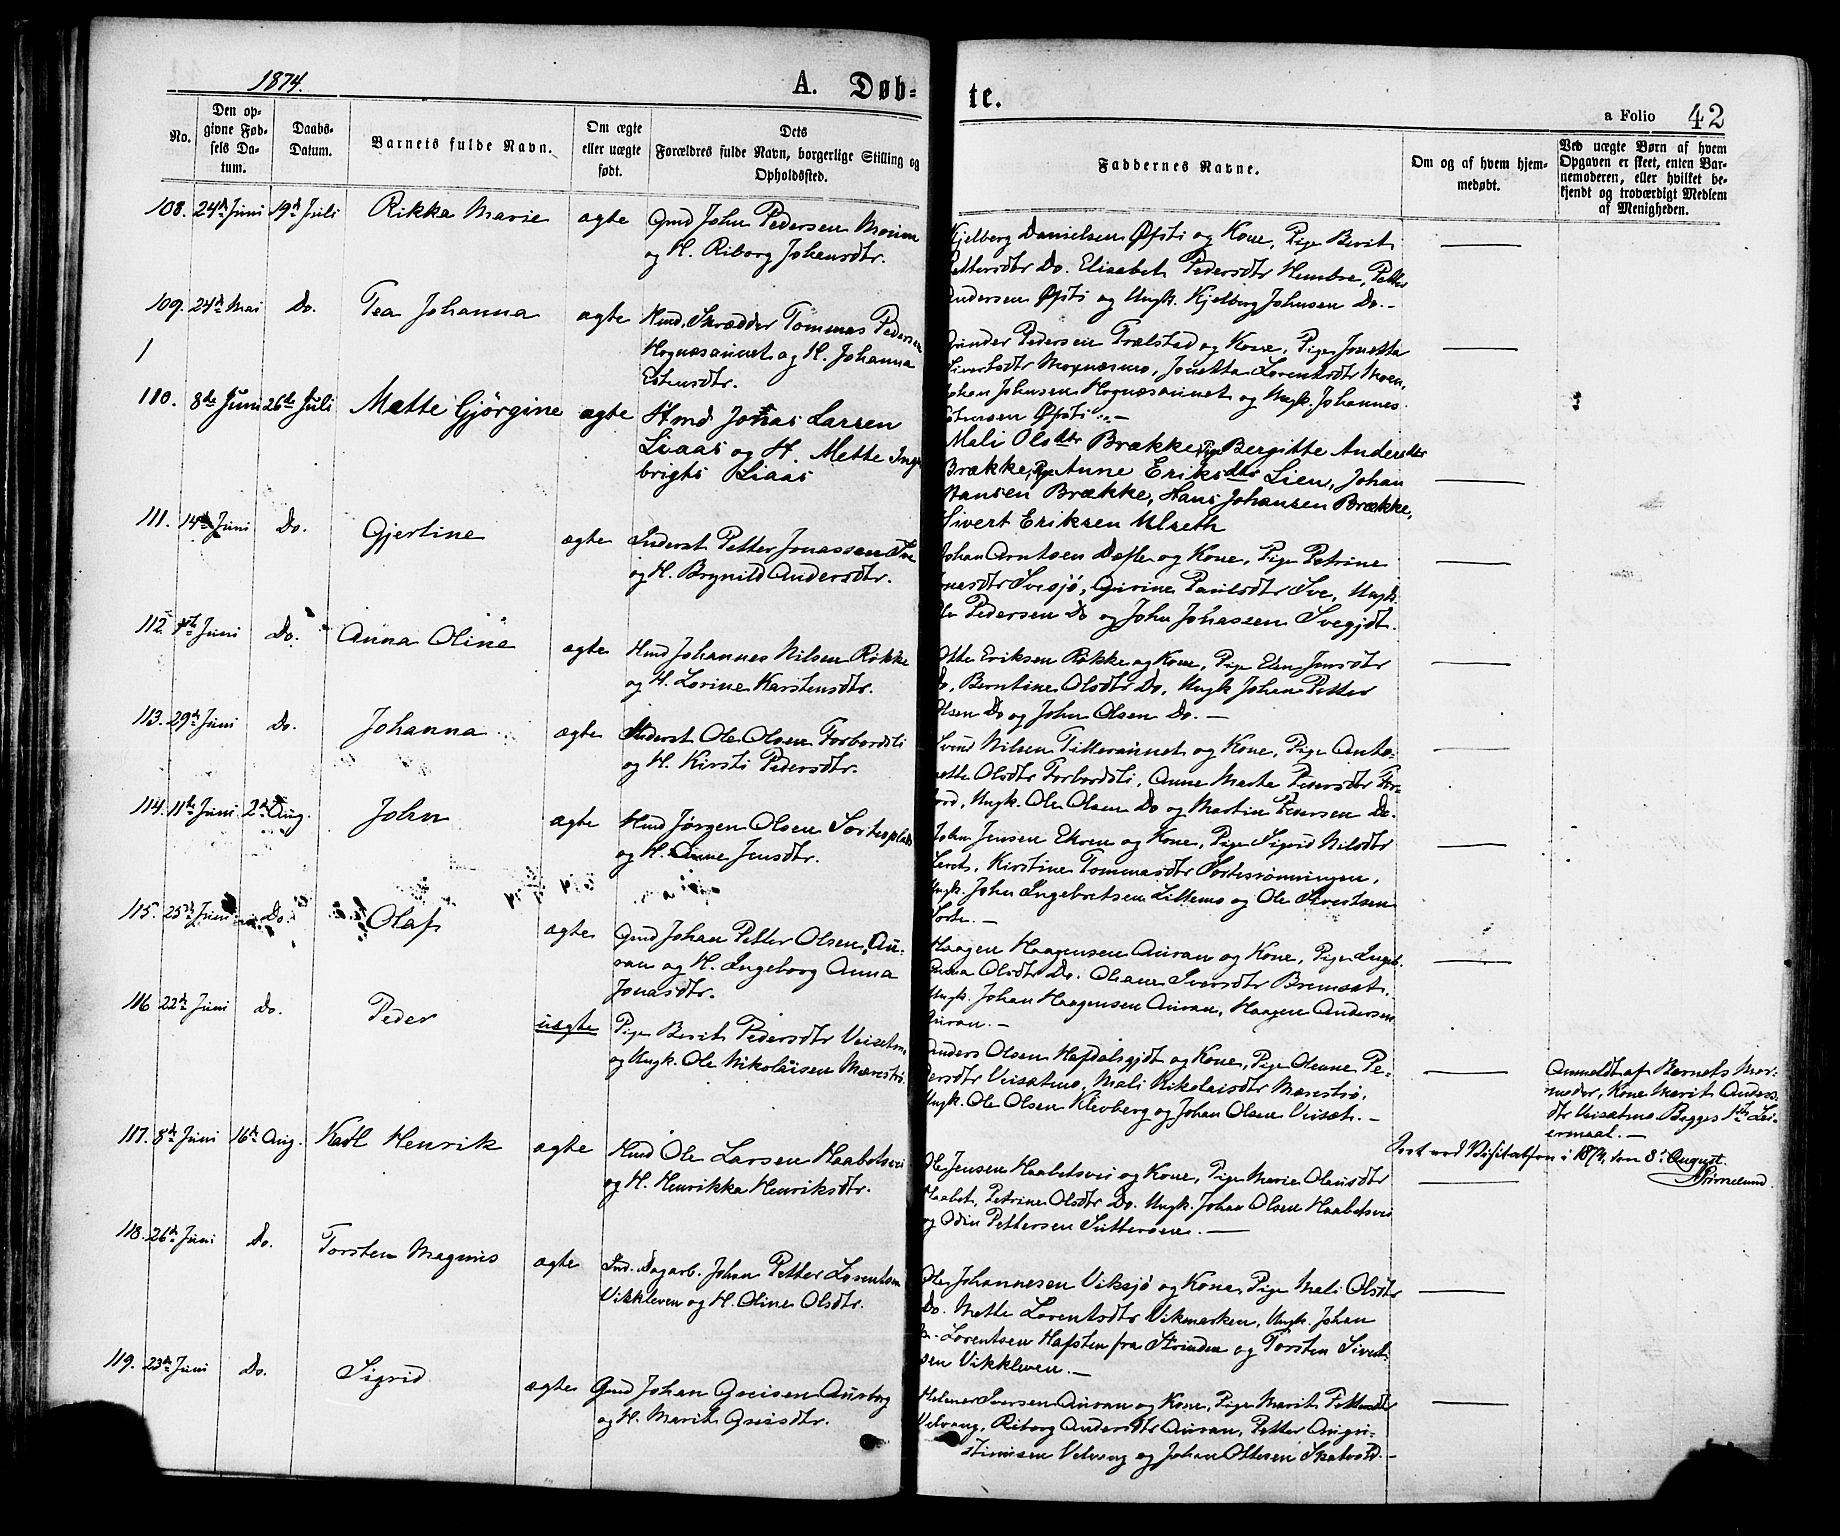 1874.
A. Døb-
te.
a Folio 42
No.
Den op-
givne Fød-
sels Da-
tum.
Daabs-
Datum.
Barnets fulde Navn.
Om ægte
eller uægte
født.
Dets
Forældres fulde Navn, borgerlige Stilling og
Opholdssted.
Faddernes Navne.
Om og af hvem hjem-
medøbt.
Ved uægte Børn af hvem
Opgaven er skeet, enten Bar-
nemoderen, eller hvilket be-
kjendt og troværdigt Medlem
af Menigheden.
108. 24de Juni 19de Juli Rikka Marie ægte Gmd John Pedersen
og H. Riborg Johnsdtr.
Kjelberg Danielsen Øfsti og Kone, Pige Berit
Pettersdtr Do. Elisabet Pedersdtr Hembre, Petter
Andersen Øfsti og Ungk. Kjelberg Johnsen Do. -
109. 24de Mai Do. Tea Johanna ægte Hmd. Skrædder Tommas Pedersen
Hognæsaunet og H. Johanna
Estensdtr.
Pedersen Trælstad og Kone, Pige Jonetta
Sivertsdtr Moxnæsmo, Jonetta Lorentsdtr Moen,
Johan Johnsen Hognæsaunet og Ungk. Johannes
Estensen Øfsti. -
110. 8de Juni 26de Juli Mætte Gjørgine ægte Hmd Jonas Larsen
Liaas og H. Mette Inge
brigts Liaas
Mali Olsdtr Brække, Pige Bergitte Andersdtr
Brække, Pige Anne Eriksdtr Lien, Johan
Hansen Brække, Hans Johansen Brække,
Sivert Eriksen Ulseth
111. 14de Juni Do. Gjertine ægte Inderst Petter Jonassen Sve
og H. Brynild Andersdtr.
Johan Arntsen Dafle og Kone, Pige Petrine
Jonasdtr Svesjø, Gurine Paulsdtr Sve, Ungk.
Ole Pedersen Do og John Johassen Svegjdt.
112. 1ste Juni Do. Anna Oline ægte Hmd Johannes Nilsen Røkke
og H. Lorine Karstensdtr.
Otte Eriksen Røkke og Kone, Pige Elen Jensdtr
Do, Berntine Olsdtr Do, Ungk Johan Petter
Olsen Do og John Olsen Do. -
113. 29de Juni Do. Johanna ægte Inderst Ole Olsen Forbordsli
og H. Kirsti Pedersdtr.
Svend Nilsen Titteraunet og Kone, Pige Anto-
nette Olsdtr Forbordsli, Anne Marta Petersdtr For-
bord, Ungk. Ole Olsen Do og Martin Petersen Do.
114. 11te Juni 2den Aug. John ægte Hmd Jørgen Olsen Sortesplads
og H. Anne Jensdtr.
John Jensen Ekren og Kone, Pige Sigrid Nilsdtr
Kirstine Tommasdtr Sortesrønningen,
Ungk. John Ingebretsen Littemo og Ole Sivertsen
Sorte. -
115. 25de Juni Do. Olaf ægte Gmd Johan Petter Olsen Au-
ran og H. Ingeborg Anna
Jonasdtr.
Haagen Haagensen Auran og Kone, Pige Ingeb.
Anna Olsdtr Do. Oliane Iversdtr Bremsæt,
Ungk. Johan Haagensen Auran, Haagen Andersen
Auran. -
116 22de Juni Do. Peder uægte Pige Berit Pedersdtr Veisetmo
og Ungk. Ole Nikolaisen Mærestrø.
Anders Olsen Hafdalsgjdt og Kone, Pige Oleane Pe-
dersdtr Veisætmo, Mali Nikolaisdtr Mærestrø,
Ungk. Ole Olsen Klevberg og Johan Olsen Veisæt. -
Anmeldt af Barnets Mor-
moder, Kone Marit Anders-
dtr Veisætmo. Begges 1ste Lei-
ermaal. -
117. 8de Juni 16de Aug. Karl Henrik ægte Hmd Ole Larsen Haabetsvei
og H. Henrikka Henriksdtr.
Seet ved Visitatsen i 1874, den 8de August.
Grimelund.
Ole Jensen Haabetsvei og Kone, Pige Marie Olausdtr
Haabet, Petrine Olsdtr Do. Ungk. Johan Olsen Haabetsvei
og Odin Pettersen Sutterøen. -
118. 26de Juni Do. Torsten Magnus ægte Ind. Dagarb. Johan Petter Lorentsen
Vikkleven og H. Oline Olsdtr.
Ole Johannesen Viksjø og Kone, Pige Mali Olsdtr
Do. Mette Lorentsdtr Vikmarken, Ungk. Johan
Lorentsen Hafsten fra Strinden og Torsten Sivert-
sen Vikkleven. -
119. 23de Juni Do. Sigrid ægte Gmd Johan Greisen Aunborg
og H. Marit Greisdtr.
Helmer Iversen Auran og Kone, Pige Marit Pettersdtr
Velvang, Riborg Andersdtr Auran, Petter Augu-
stinusen Velvang og Johan Ottesen Skatvold. -